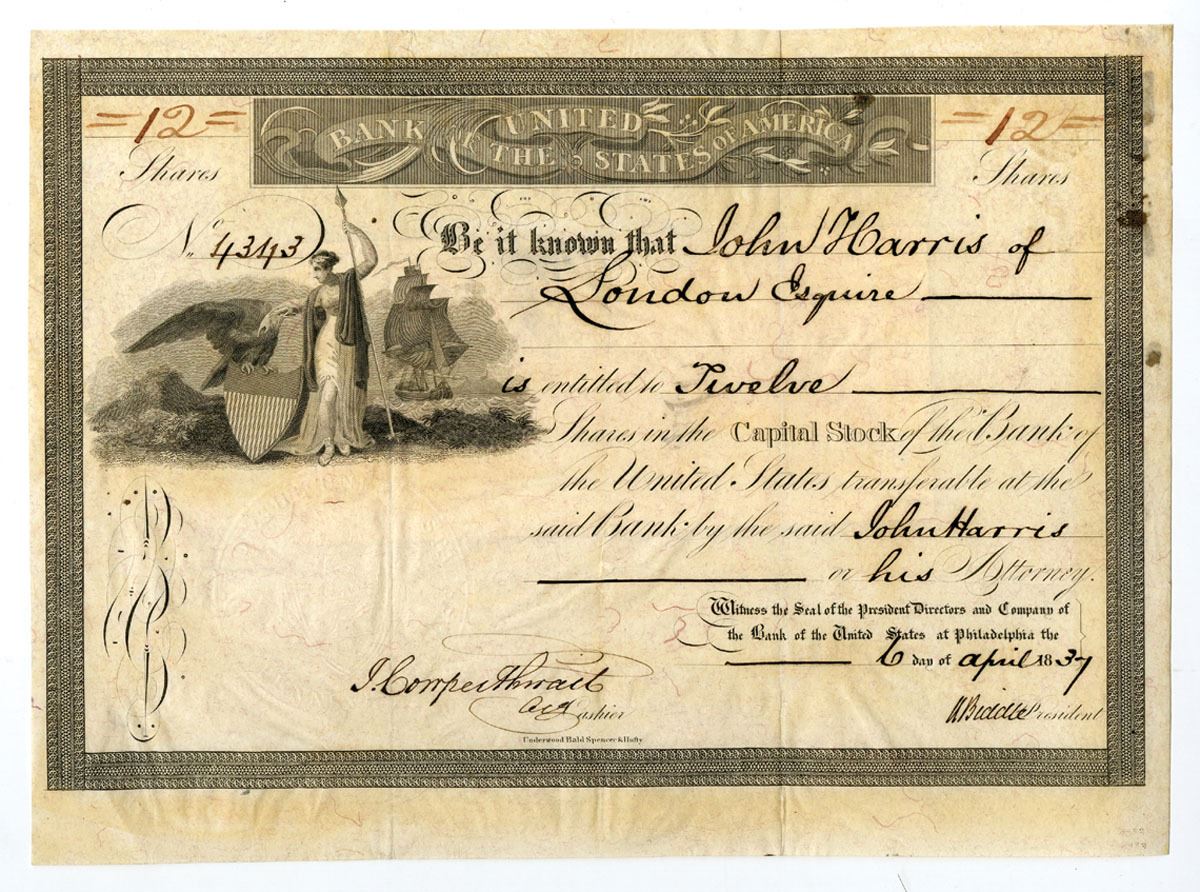 =12=
BANK OF THE UNITED STATES OF AMERICA
=12=
Shares
Shares
No. 4343
Be it known that John Harris of
London Esquire
is entitled to Twelve
Shares in the Capital Stock of the Bank of
the United States transferable at the
said Bank by the said John Harris
or his Attorney.
Witness the Seal of the President Directors and Company of
the Bank of the United States at Philadelphia the
6 day of april 1837
J. Cowperthwait
Cashier
N Biddle President
Underwood Bald Spencer & Hufty